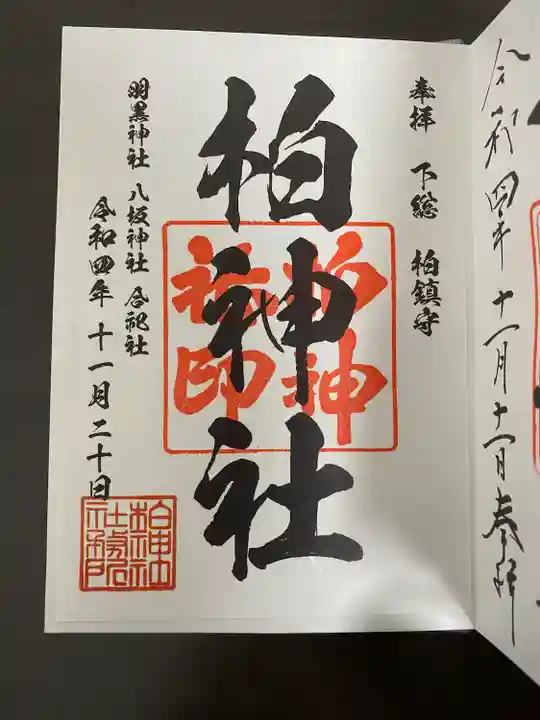 令和四年十一月十一日奉拝
奉拝 下総 柏鎮守
柏神社
柏神
社印
羽黒神社 八坂神社 合祀社
令和四年 十一月二十日
柏神社
社務所